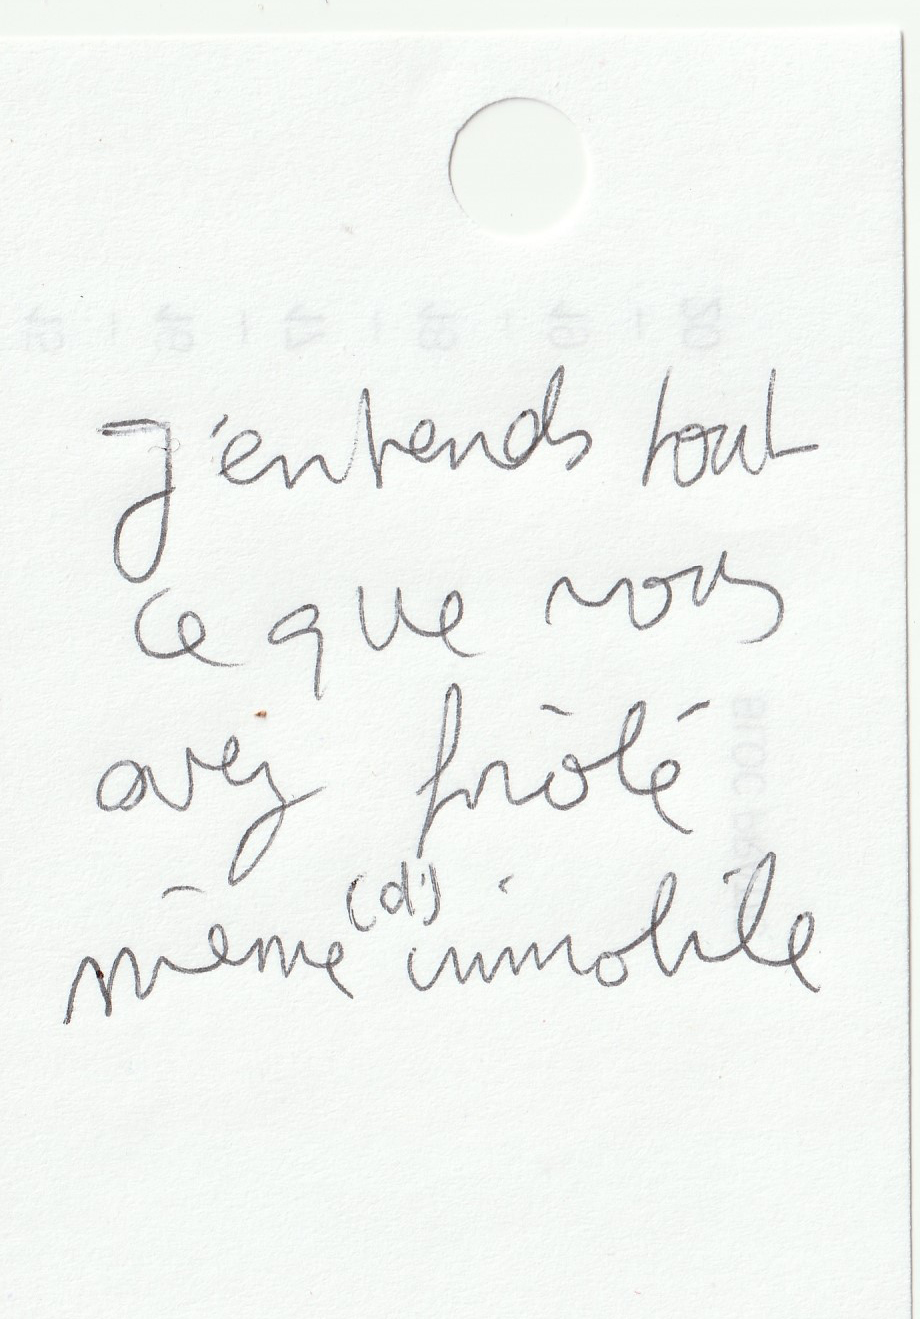 J'entends tout
ce que vous
avez frôlé
même (d') immobile